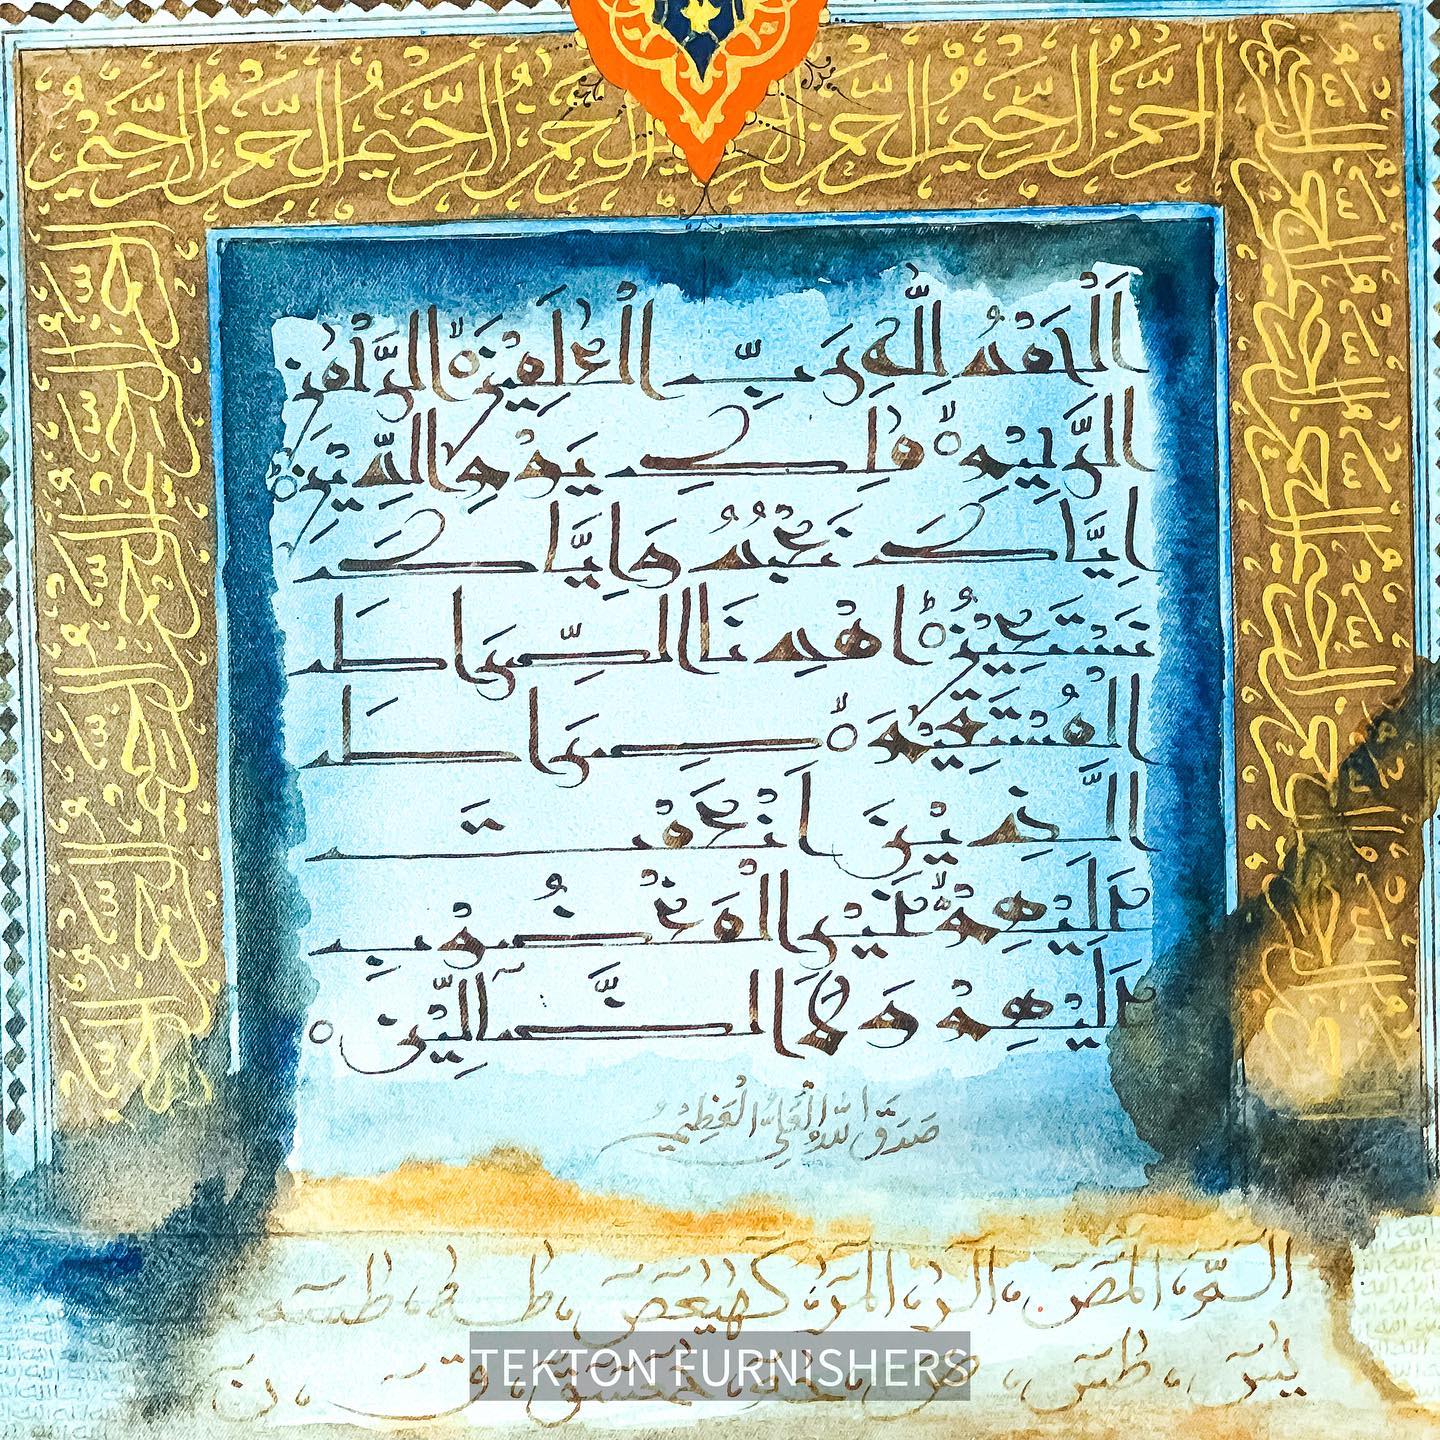 الرحمن الرحيم الرحمن الرحيم الرحمن الرحيم
اَلْحَمْدُ لِلّٰهِ رَبِّ الْعٰلَمِيْنَ ۙ الرَّحْمٰنِ
الرَّحِيْمِ ۙ مٰلِكِ يَوْمِ الدِّيْنِ ؕ
اِيَّاكَ نَعْبُدُ وَاِيَّاكَ
نَسْتَعِيْنُ ؕ اهْدِنَا الصِّرَاطَ
الْمُسْتَقِيْمَ ۙ صِرَاطَ
الَّذِيْنَ اَنْعَمْتَ
عَلَيْهِمْ ۙ غَيْرِ الْمَغْضُوْبِ
عَلَيْهِمْ وَلَا الضَّآلِّيْنَ
صَدَقَ اللّٰهُ الْعَلِيُّ الْعَظِيْمُ
الٓمّٓ، الٓمّٓصٓ، الٓرٰ، الٓمّٓرٰ، كٓهٰيٰعٓصٓ، طٰهٰ، طٰسٓمّٓ
يٰسٓ، طٰسٓ، صٓ، حٰمٓ، حٰمٓ عٓسٓقٓ، قٓ، نٓ
TEKTON FURNISHERS